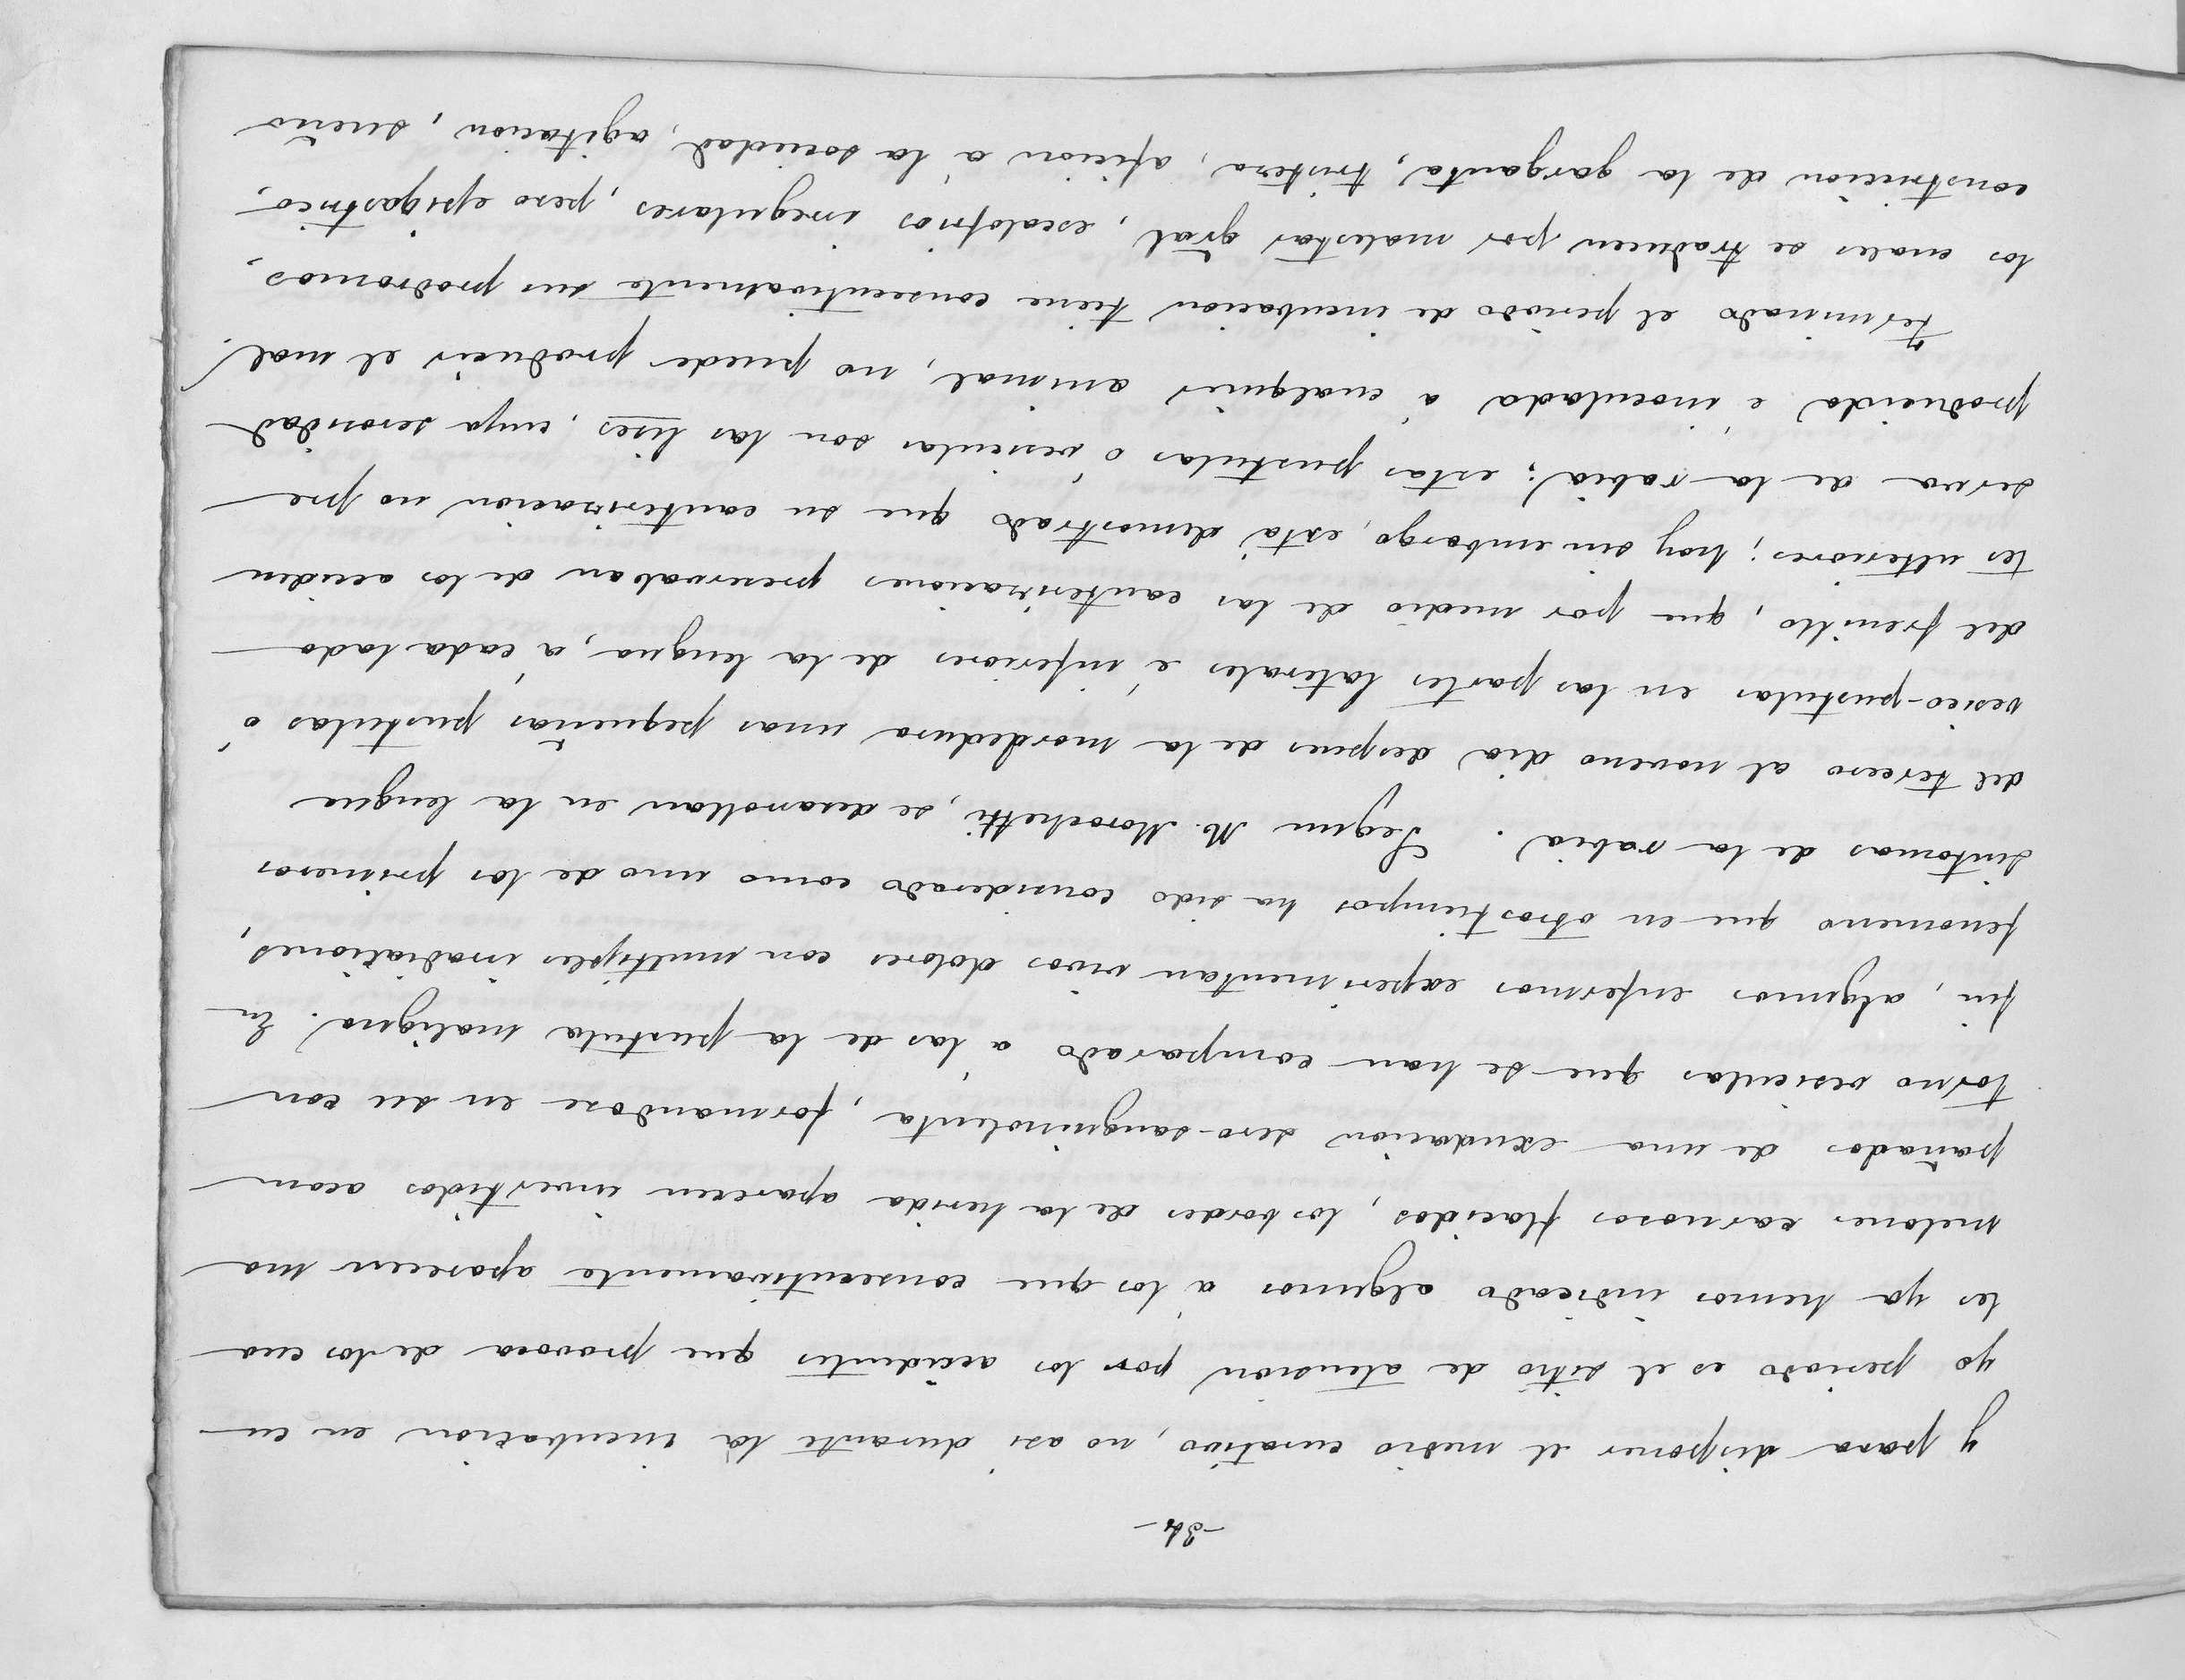 -34-
y para disponer el medio curativo, no asi durante la incubacion en cu
yo periodo es el sitio de atencion por los accidentes que provoca de los cua
les ya hemos indicado algunos á los que consecutivamente aparecen ma
melones carnosos flacidos, los bordes de la herida aparecen invertidos acom
pañados de una exudacion sero-sanguinolenta, formandose en su con
torno vesiculas que se han comparado á las de la pustula maligna. En
fin, algunos enfermos experimentan vivos dolores con multiples irradiationes,
fenomeno que en otros tiempos ha sido considerado como uno de los primeros
sintomas de la rabia. Segun M. Marochetti, se desarrollan en la lengua
del tercero al noveno dia despues de la mordedura unas pequeñas pustulas ó
vesico-pustulas en las partes laterales é inferiores de la lengua, á cada lado
del frenillo, que por medio de las cauterizaciones preservaban de los acciden
tes ulteriores; hoy sin embargo, está demostrado que su cauterizacion no pre
serva de la rabia; estas pustulas ó vesiculas son las lises, cuya serosidad
producida é inoculada á cualquier animal, no puede producir el mal.
Terminado el periodo de incubacion tiene consecutivamente sus prodromos,
los cuales se traducen por malestar gral, escalofrios irregulares, peso epigastrico,
constriccion de la garganta, tristeza, aficion á la soriedad, agitacion, sueño